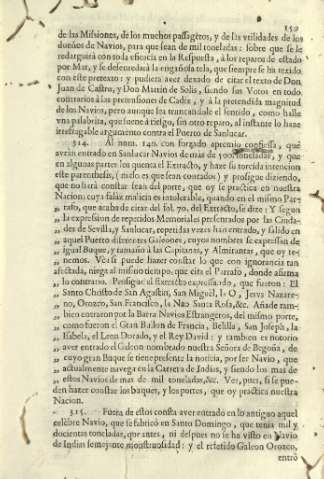 159
de las Missiones, de los muchos passageros, y de las utilidades de los
dueños de Navios, para que sean de mil toneladas: sobre que se le
redarguirà con toda eficacia en la Respuesta, à los reparos de estado
por Mar, y se desenredarà la engañosa tela, que siempre se ha texido
con este pretexto: y pudiera aver dexado de citar el texto de Don
Juan de Castro, y Don Martin de Solis, siendo sus Votos en todo
contrarios à las pretensiones de Cadiz, y à la pretendida magnitud
de los Navios, pero aunque sea truncandole el sentido, como halle
vna palabrita, que suene à riesgo, sin otro reparo, al instante lo hane
irrefragable argumento contra el Puerto de Sanlucar.
314. Al num. 140. con forzado apremio confiessa, que
averàn entrado en Sanlucar Navios de mas de 500. toneladas, y que
en algunas partes los quenta el Extracto, y haze su torcida intencion
este parenthesis, ( nielo es que sean contados) y prosigue diziendo,
que no harà constar sean del porte, que oy se practica en nuestra
Nacion: cuya falaz malicia es intolerable, quando en el mismo Par-
rafo, que acaba de citar del fol. 70. del Extracto, se dize: Y segun
„ la expression de repetidos Memoriales presentados por las Ciuda-
„ des de Sevilla, y Sanlucar, repetidas vezes han entrado, y salido en
„ aquel Puerto diferentes Galeones, cuyos nombres se expressan de
„ igual Buque, y tamaño à las Capitanas, y Almirantas, que oy te-
„ nemos. Vease si puede hazer constar lo que con ignorancia tan
afectada, niega al mismo tiempo, que cita el Parrafo, donde afirma
lo contrario. Prosigue el Extracto expressando, que fueron: El
Santo Christo de San Agustin, San Miguèl, la O, Jesvs Nazare-
no, Orozco, San Francisco, la Naò Santa Rosa, &c. Añade tam-
bien entraron por la Barra Navios Estrangeros, del mismo porte,
„ como fueron el Gran Bailon de Francia, Belilla, San Joseph, la
„ Isabela, el Leon Dorado, y el Rey David: y tambien es notorio
„ aver entrado el Galeon nombrado nuestra Señora de Begoña, de
„ cuyo gran Buque se tiene presente la noticia, por ser Navio, que
„ actualmente navega en la Carrera de Indias, y siendo los mas de
„ estos Navios de mas de mil toneladas, &c. Ver, pues, si se pue-
den hazer constar los buques, y los portes, que oy practica nuestra
Nacion.
315. Fuera de estos consta aver entrado en lo antiguo aquel
celebre Navio, que se fabricò en Santo Domingo, que tenia mil y
docientas toneladas, que antes, ni despues no se ha visto en Navio
de Indias semejante monstruosidad: y el referido Galeon Orozco,
entrò